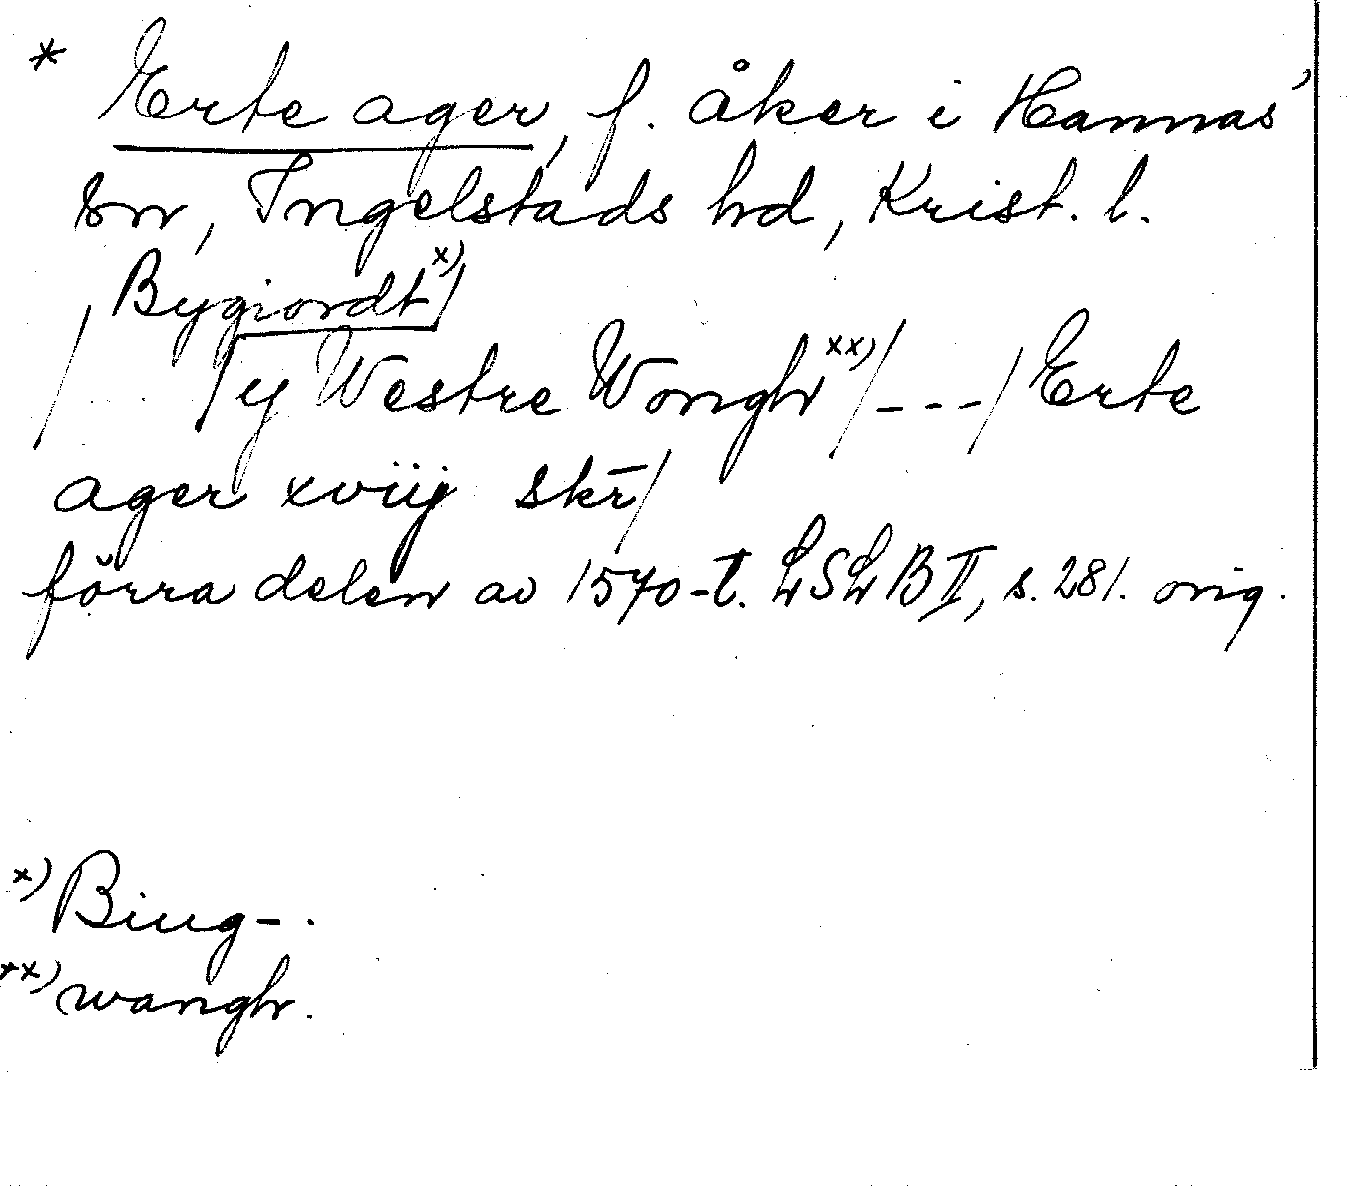 * Erte ager, f. åker i Hannas'
sn, Ingelstads hd, Krist. l.
/ Bygiordt x)/
/y Westre Wongh xx)/---/Erte
ager xviij skr̄/
förra delen av 1570-t. LSLB II, s. 281. orig.
x) Biug-.
xx) wangh.